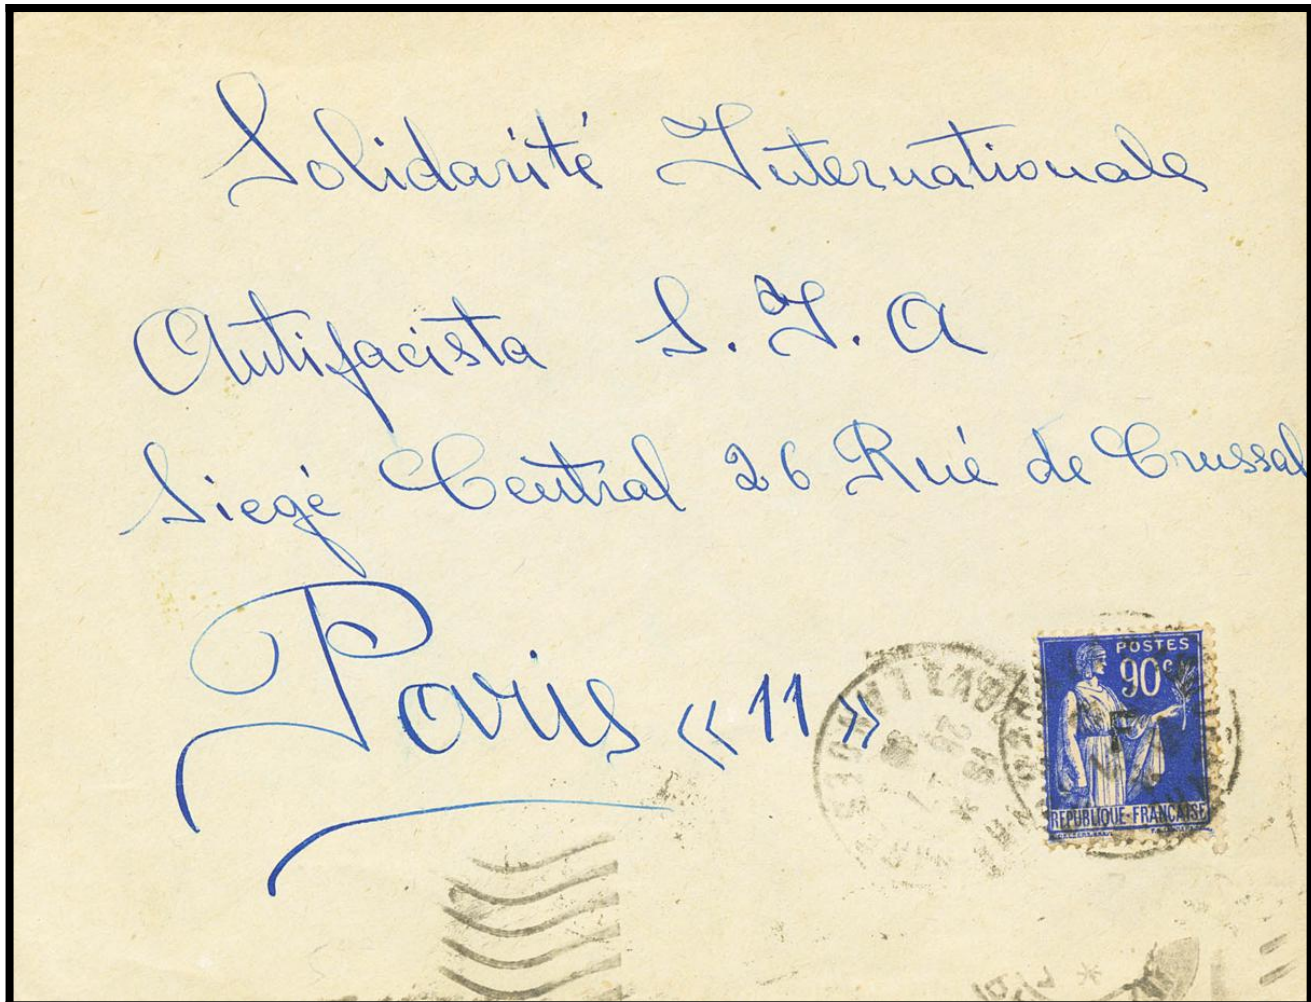 Solidarité Internationale
Antifacista S. I. A
Siegé Central 26 Rué de Crussal
Paris « 11 »
POSTES
90c
F
REPUBLIQUE-FRANÇAISE